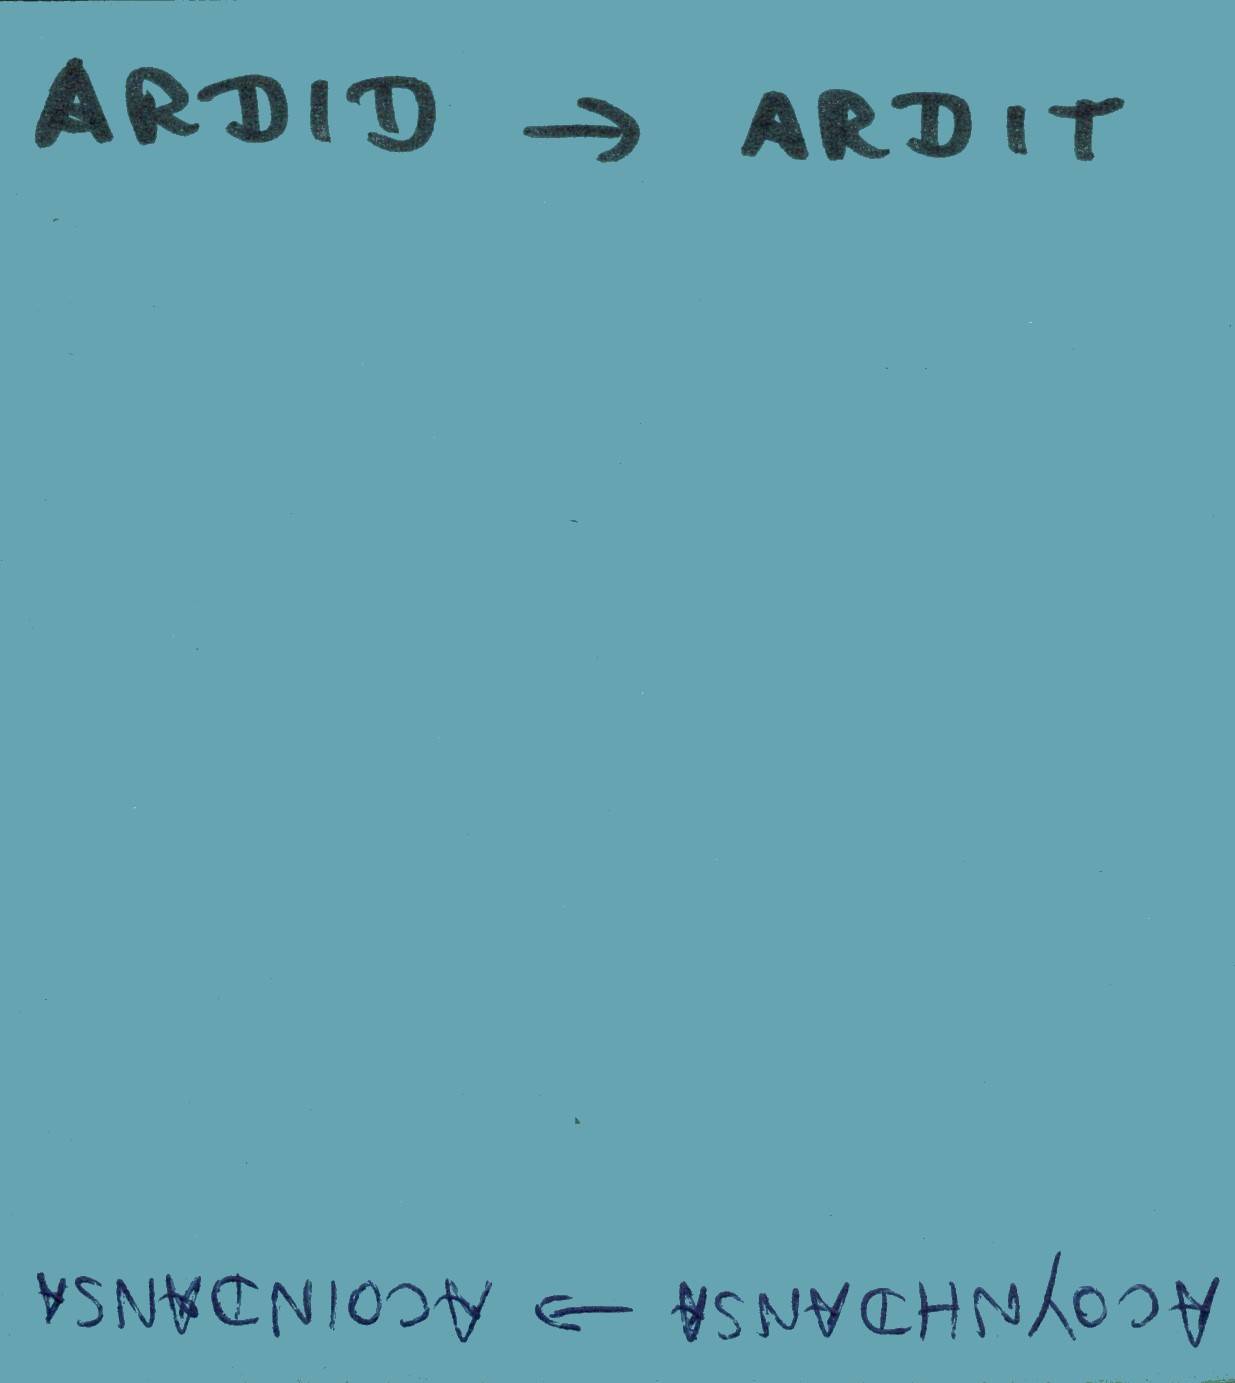 ARDID → ARDIT
ACOYNHDANSA → ACOINDANSA